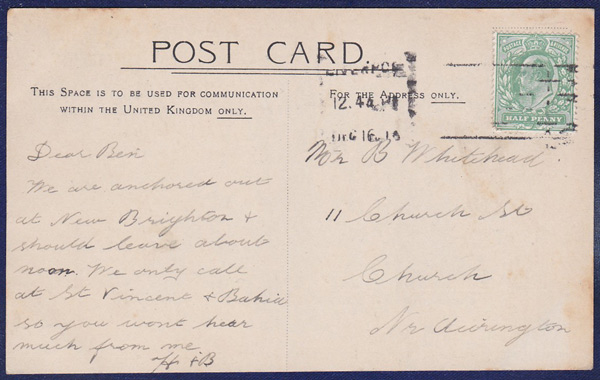 POST CARD.
THIS SPACE IS TO BE USED FOR COMMUNICATION
WITHIN THE UNITED KINGDOM ONLY.
FOR THE ADDRESS ONLY.
12.44 PM
DEC 16
POSTAGE
HALF PENNY
Dear Ben
We are anchored out
at New Brighton &
should leave about
noon. We only call
at St Vincent & Bahia
so you wont hear
much from me
H & B
Mr B Whitehead
11 Church St
Church
Nr Accrington